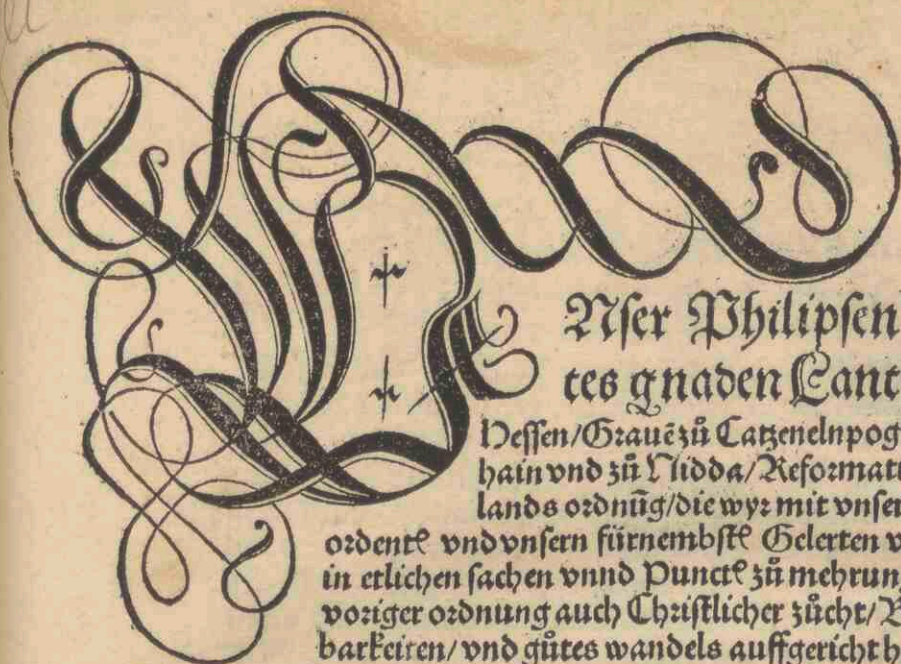 VNser Philipsen
tes gnaden Lant
Hessen/Grauẽ zů Catzenelnpog
hain vnd zů Nidda/Reformati
lands ordnũg/die wyr mit vnser
ordentẽ vnd vnsern fürnembstẽ Gelerten v
in etlichen sachen vnnd Punctẽ zů mehrun
voriger ordnung auch Christlicher zůcht/
barkeiten/vnd gůtes wandels auffgericht h